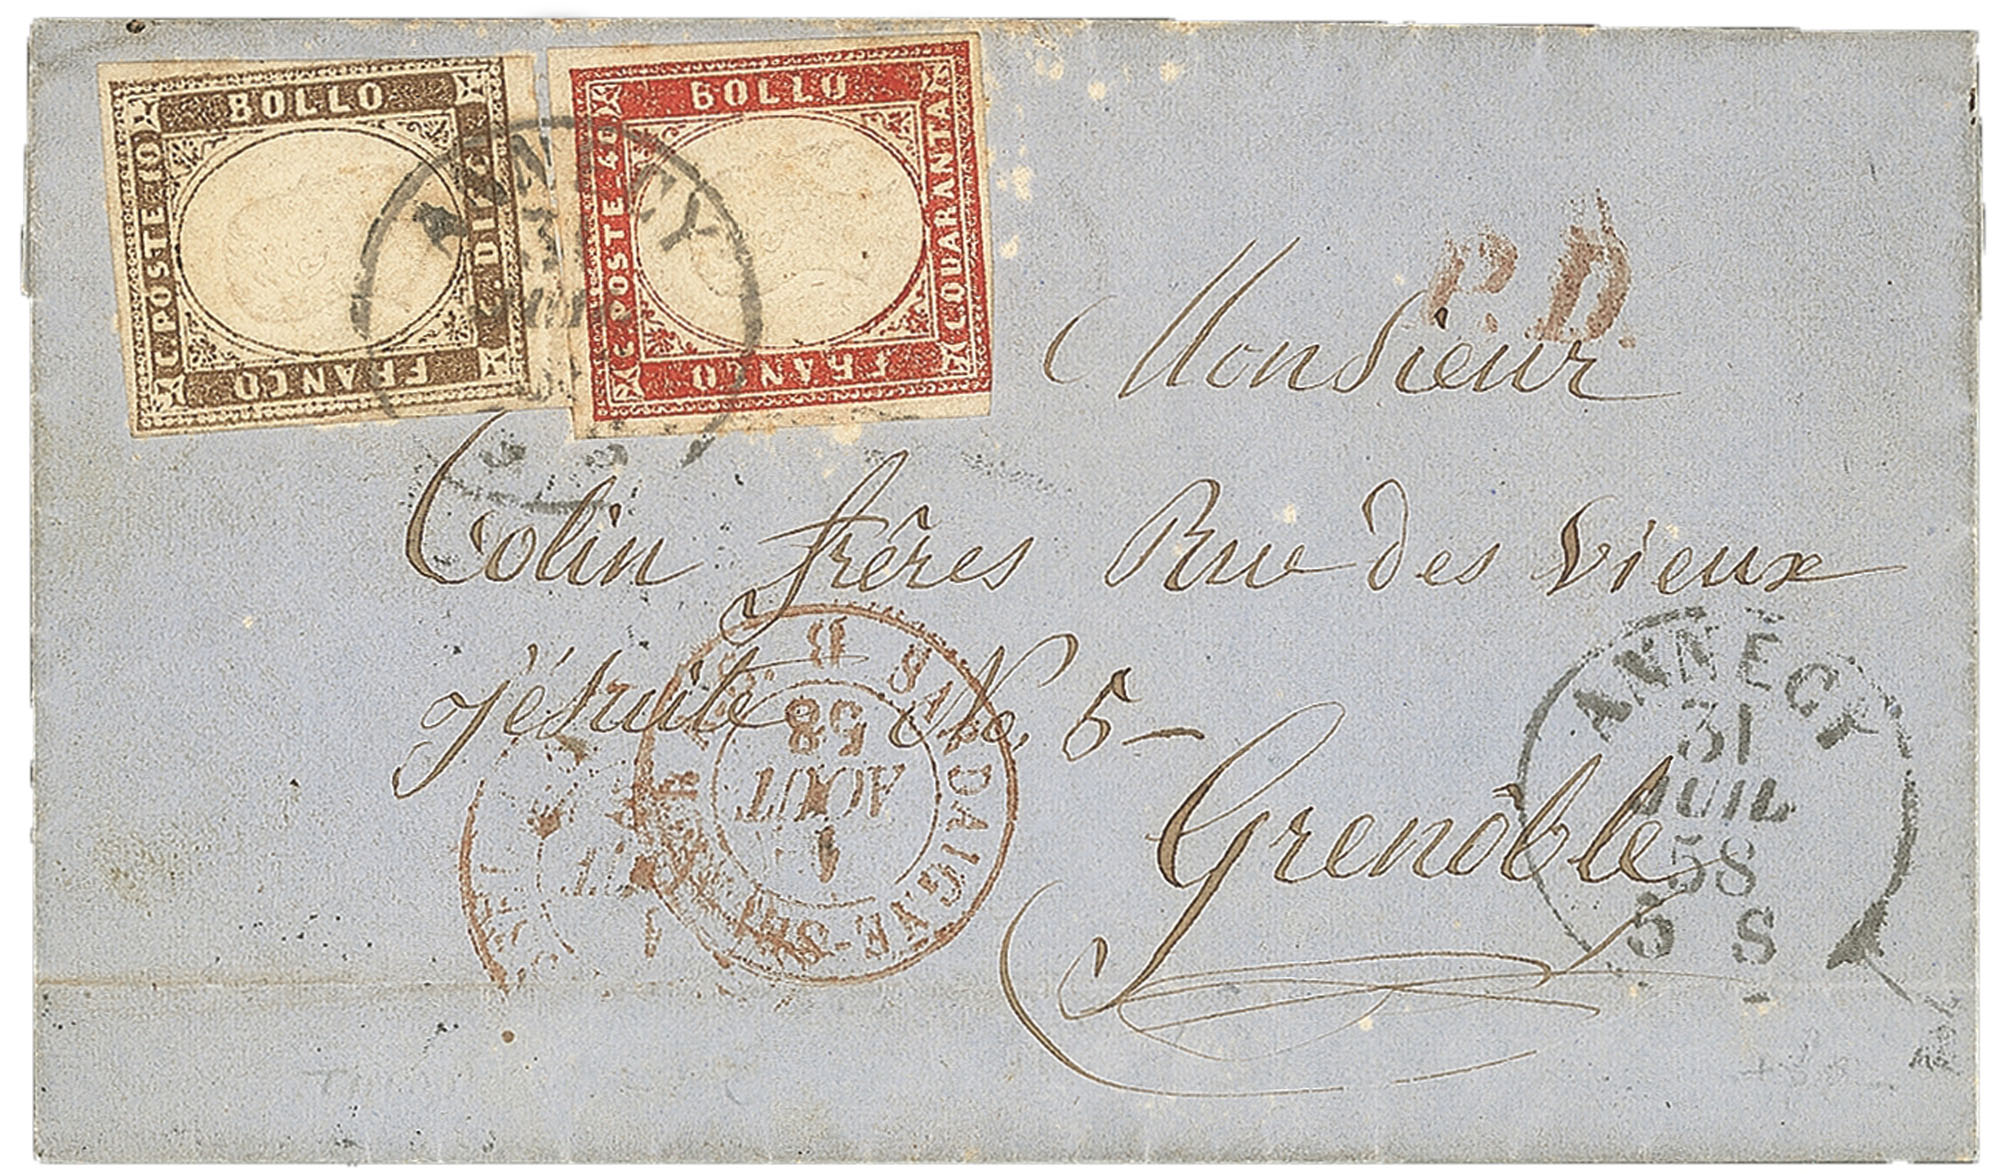 BOLLO
C. POSTE 10
C. DIECI
FRANCO
BOLLO
C. POSTE 40
C. QUARANTA
FRANCO
ANNECY
P.D.
Monsieur
Colin frères Rue des Vieux
Jésuite No. 5 -
Grenoble
SARDAIGNE
1
AOUT
58
ANNECY
31
JUIL
58
3 S